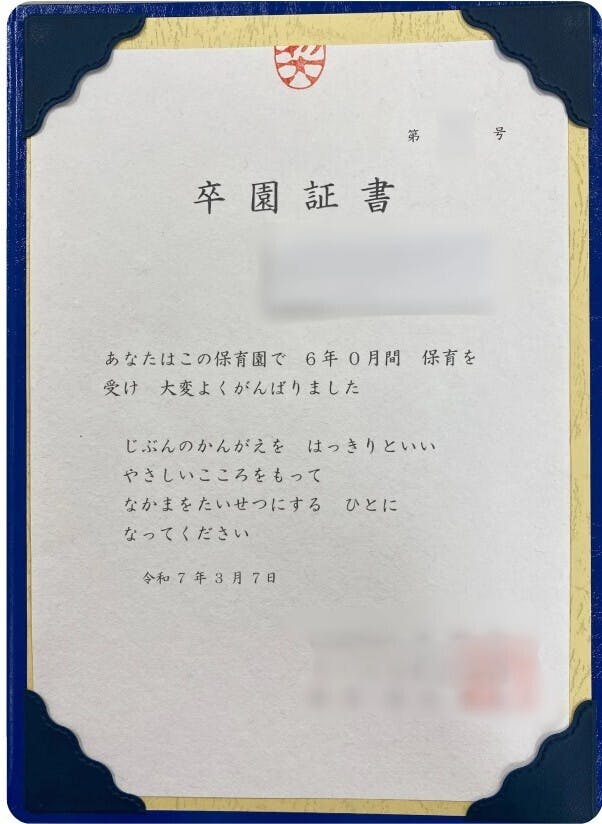 第 号
卒園証書
あなたはこの保育園で 6年0月間 保育を
受け 大変よくがんばりました
じぶんのかんがえを はっきりといい
やさしいこころをもって
なかまをたいせつにする ひとに
なってください
令和7年3月7日